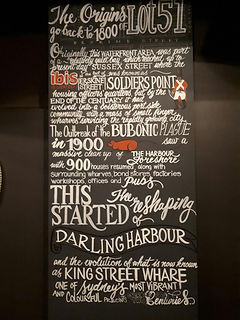 The Origins of LOT 51
go back to 1800
Originally this WATERFRONT AREA was part
of a relatively quiet bay, which reached up to
present day SUSSEX STREET where the
ibis
ERSKINE STREET SOLDIERS POINT
houses officers quarters, but by the
END OF THE CENTURY it had
evolved into a boisterous port side
community, with a maze of small finger
wharves servicing the rapidly growing city.
The Outbreak of the BUBONIC PLAGUE
in 1900 saw a
massive clean up of THE HARBOUR foreshore
with 900 houses resumed, along with
surrounding wharves, bond stores, factories
workshops, offices and Pubs
THIS The reshaping
STARTED of
DARLING HARBOUR
and the evolution of what is now known
as KING STREET WHARF
ONE of Sydney's MOST VIBRANT
AND COLOURFUL Precincts
Centuries